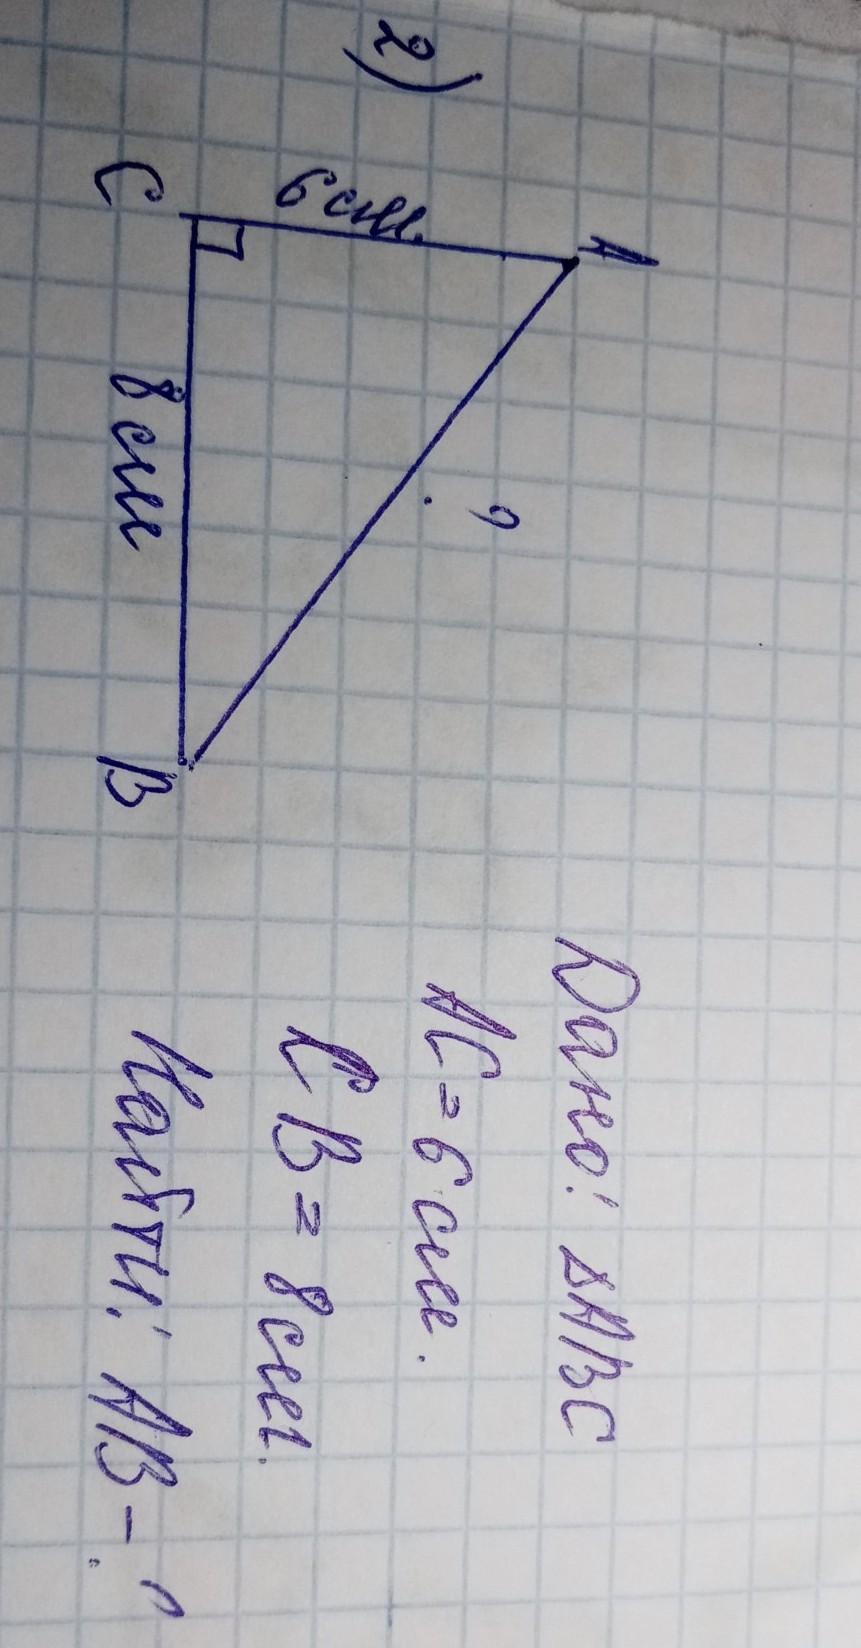 2)
A
6 см.
?
C
8 см
B
Дано: ΔABC
AC = 6 см.
CB = 8 см.
Найти: AB - ?